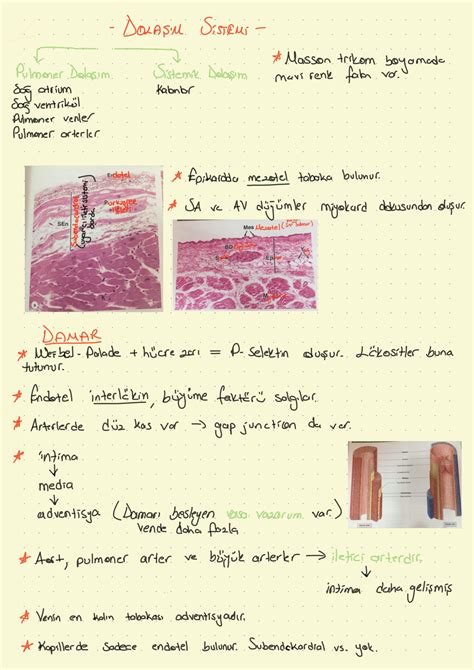 - Dolaşım Sistemi -
Pulmoner Dolaşım
Sağ atrium
Sağ ventrikül
Pulmoner venler
Pulmoner arterler
Sistemik Dolaşım
Kalanlar
* Masson trikom boyamada
mavi renk faba var.
Endotel
Purkinje
SEn
* Epikardda mezotel tabaka bulunur.
* SA ve AV düğümler miyokard dokusundan oluşur.
Mes Mezotel
DAMAR
* Weibel-Palade + hücre zarı = P-Selektin oluşur. Lökositler buna
tutunur.
* Endotel interlökin, büyüme faktörü salgılar.
* Arterlerde düz kas var → gap junction da var.
* intima
↓
media
↓
adventisya (Damarı besleyen vasa vazorum var.)
vende daha fazla
* Aort, pulmoner arter ve büyük arterler → iletici arterdir.
↓
intima daha gelişmiş
* Venin en kalın tabakası adventisyadır.
* Kapillerde sadece endotel bulunur. Subendokardial vs. yok.